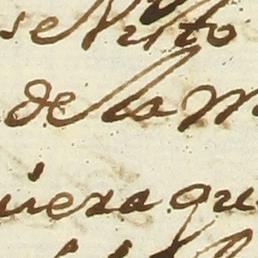 se Visto
de la m
iera qu